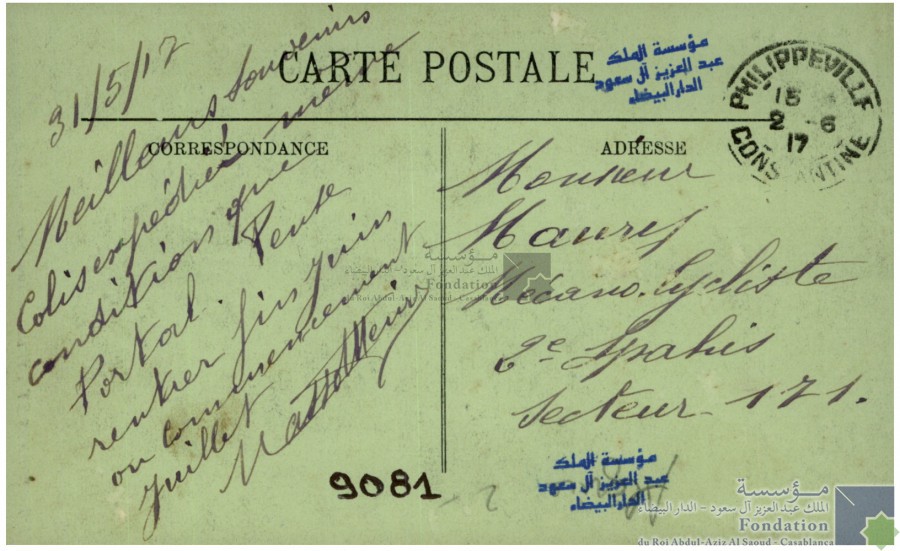 CARTE POSTALE
CORRESPONDANCE
ADRESSE
31/5/17
Meilleurs Souvenirs
Colis expédié même
condition que
Portal. Pense
rentrer fin juin
ou commencement
juillet
Monsieur
Maury
Mécano. Cycliste
2e Spahis
Secteur 171.
PHILIPPEVILLE
15
2 -6
17
CONSTANTINE
مؤسسة الملك
عبد العزيز آل سعود
الدار البيضاء
مؤسسة
الملك عبد العزيز آل سعود - الدار البيضاء
Fondation
du Roi Abdul-Aziz Al Saoud - Casablanca
9081
مؤسسة الملك
عبد العزيز آل سعود
الدار البيضاء
مؤسسة
الملك عبد العزيز آل سعود - الدار البيضاء
Fondation
du Roi Abdul-Aziz Al Saoud - Casablanca